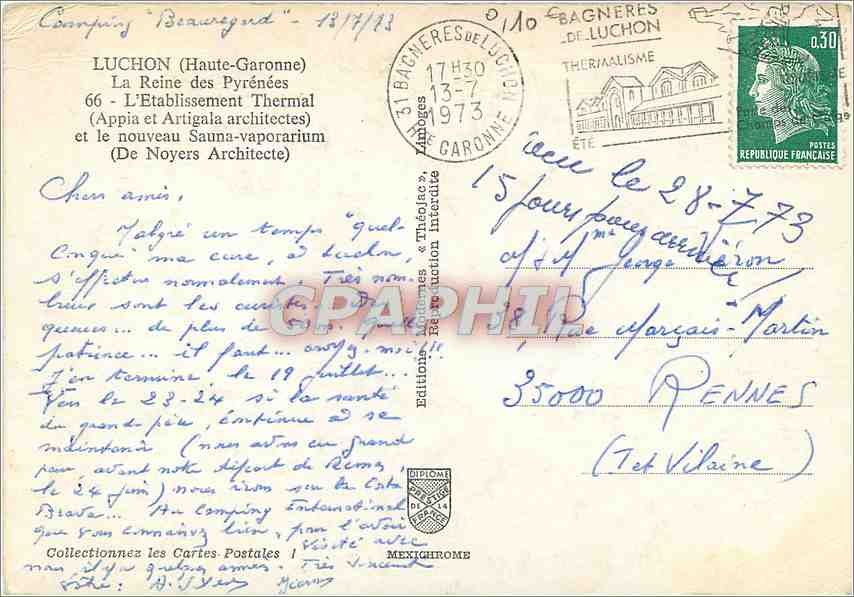 Camping "Beauregard" - 13/7/73
0,10 €
LUCHON (Haute-Garonne)
La Reine des Pyrénées
66 - L'Etablissement Thermal
(Appia et Artigala architectes)
et le nouveau Sauna-vaporarium
(De Noyers Architecte)
31 BAGNERES DE LUCHON
17 H 30
13-7
1973
HTE GARONNE
BAGNERES
DE LUCHON
THERMALISME
ÉTÉ
0,30
POSTES
REPUBLIQUE FRANÇAISE
Chers amis,
Malgré un temps "quel-
conque" ma cure, à Luchon,
s'effectue normalement. Très nom-
breux sont les curistes.
queues... de plus de 50 m. Quelle
patience... il faut... croyez-moi!!!
J'en termine le 19 juillet...
Vers le 23-24 si la santé
du grand-père, continue à se
maintenir (nous avons eu grand
peur avant notre départ de
le 24 juin) nous irons sur la Costa
Brava... Au Camping International
que vous connaissez bien, pour l'avoir
visité avec
nous il y a quelques années. Très
votre:
Editions Modernes « Théojac », Limoges
Reproduction Interdite
le 28-7-73
15 jours pour arriver
M & Mme George
38, Rue Marçais-Martin
35000 RENNES
(I et Vilaine)
CPAPHIL
DIPLOME
PRESTIGE
DE 14
FRANCE
Collectionnez les Cartes Postales !
MEXICHROME